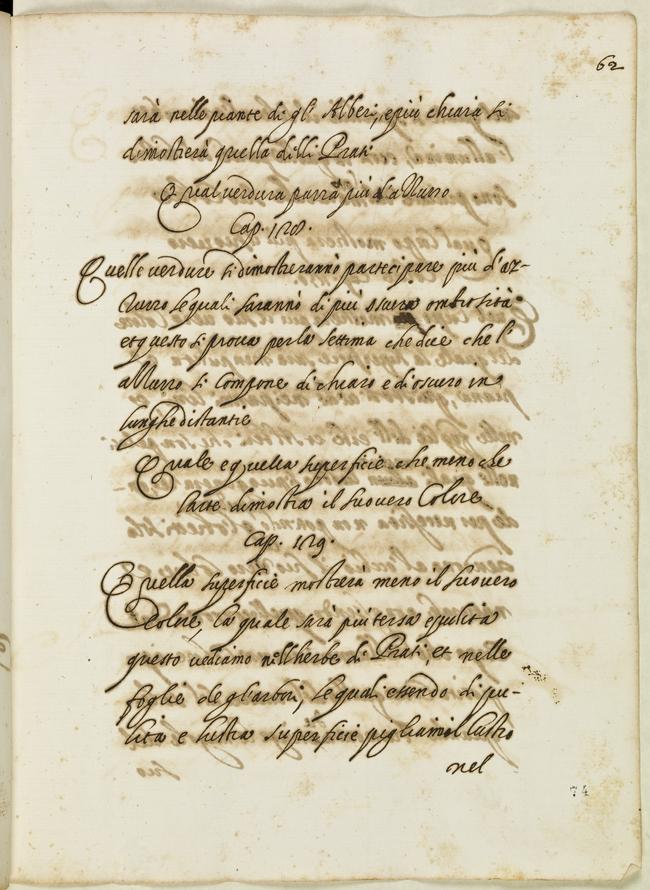 62
sarà nelle piante di gl'Alberi, e più chiara si
dimosterà quella delli Prati
Qual verdura parrà più d'azzurro
Cap. 128.
Quelle verdure si dimosteranno partecipare più d'az-
zurro le quali saranno di più scura ombrosità
et questo si prova per la settima che dice che l'
azzurro si compone di chiaro e di oscuro in
lunghe distantie
Quale e quella superficie che meno che
l'arte dimostra il suo vero Colore
Cap. 129.
Quella superficie mosterà meno il suo vero
Colore, la quale sarà più tersa e pulita
questo vediamo nell'herbe di Prati, et nelle
foglie de gl'arbori, le quali essendo di pu-
lita e lustra superficie pigliano il lustro
nel
74